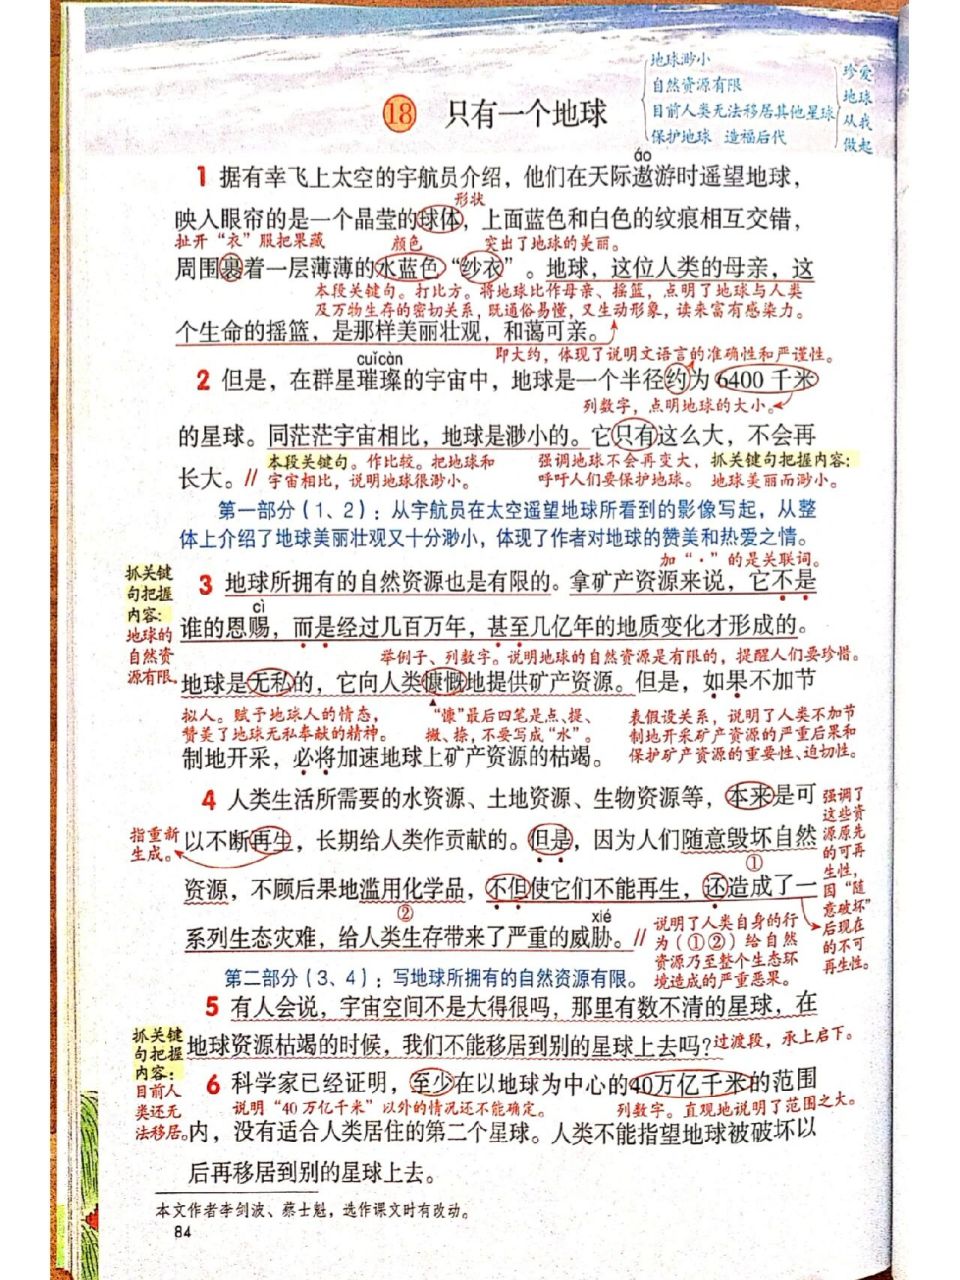 地球渺小
自然资源有限
目前人类无法移居其他星球
保护地球 造福后代
珍爱
地球
从我
做起
18 只有一个地球
áo
1 据有幸飞上太空的宇航员介绍，他们在天际遨游时遥望地球，
形状
映入眼帘的是一个晶莹的球体，上面蓝色和白色的纹痕相互交错，
扯开“衣”服把果藏 颜色 突出了地球的美丽。
周围裹着一层薄薄的水蓝色“纱衣”。地球，这位人类的母亲，这
本段关键句。打比方。将地球比作母亲、摇篮，点明了地球与人类
及万物生存的密切关系，既通俗易懂，又生动形象，读来富有感染力。
个生命的摇篮，是那样美丽壮观，和蔼可亲。
cuǐcàn 即大约，体现了说明文语言的准确性和严谨性。
2 但是，在群星璀璨的宇宙中，地球是一个半径约为 6400 千米
列数字，点明地球的大小。
的星球。同茫茫宇宙相比，地球是渺小的。它只有这么大，不会再
本段关键句。作比较。把地球和 强调地球不会再变大， 抓关键句把握内容：
长大。// 宇宙相比，说明地球很渺小。 呼吁人们要保护地球。 地球美丽而渺小。
第一部分（1、2）：从宇航员在太空遥望地球所看到的影像写起，从整
体上介绍了地球美丽壮观又十分渺小，体现了作者对地球的赞美和热爱之情。
加“·”的是关联词。
抓关键
句把握
内容：
地球的
自然资
源有限。
3 地球所拥有的自然资源也是有限的。拿矿产资源来说，它不是
cì
谁的恩赐，而是经过几百万年，甚至几亿年的地质变化才形成的。
举例子、列数字。说明地球的自然资源是有限的，提醒人们要珍惜。
地球是无私的，它向人类慷慨地提供矿产资源。但是，如果不加节
拟人。赋予地球人的情态， “慷”最后四笔是点、提、 表假设关系，说明了人类不加节
赞美了地球无私奉献的精神。 撇、捺，不要写成“水”。 制地开采矿产资源的严重后果和
保护矿产资源的重要性、迫切性。
制地开采，必将加速地球上矿产资源的枯竭。
4 人类生活所需要的水资源、土地资源、生物资源等，本来是可
指重新
生成。
以不断再生，长期给人类作贡献的。但是，因为人们随意毁坏自然
①
资源，不顾后果地滥用化学品，不但使它们不能再生，还造成了一
② xié
系列生态灾难，给人类生存带来了严重的威胁。//
强调了
这些资
源原先
的可再
生性，
因“随
意破坏”
后现在
的不可
再生性。
说明了人类自身的行
为（①②）给自然
资源乃至整个生态环
境造成的严重恶果。
第二部分（3、4）：写地球所拥有的自然资源有限。
5 有人会说，宇宙空间不是大得很吗，那里有数不清的星球，在
抓关键
句把握
内容：
目前人
类还无
法移居。
地球资源枯竭的时候，我们不能移居到别的星球上去吗？过渡段，承上启下。
6 科学家已经证明，至少在以地球为中心的40万亿千米的范围
说明“40万亿千米”以外的情况还不能确定。 列数字。直观地说明了范围之大。
内，没有适合人类居住的第二个星球。人类不能指望地球被破坏以
后再移居到别的星球上去。
本文作者李剑波、蔡士魁，选作课文时有改动。
84